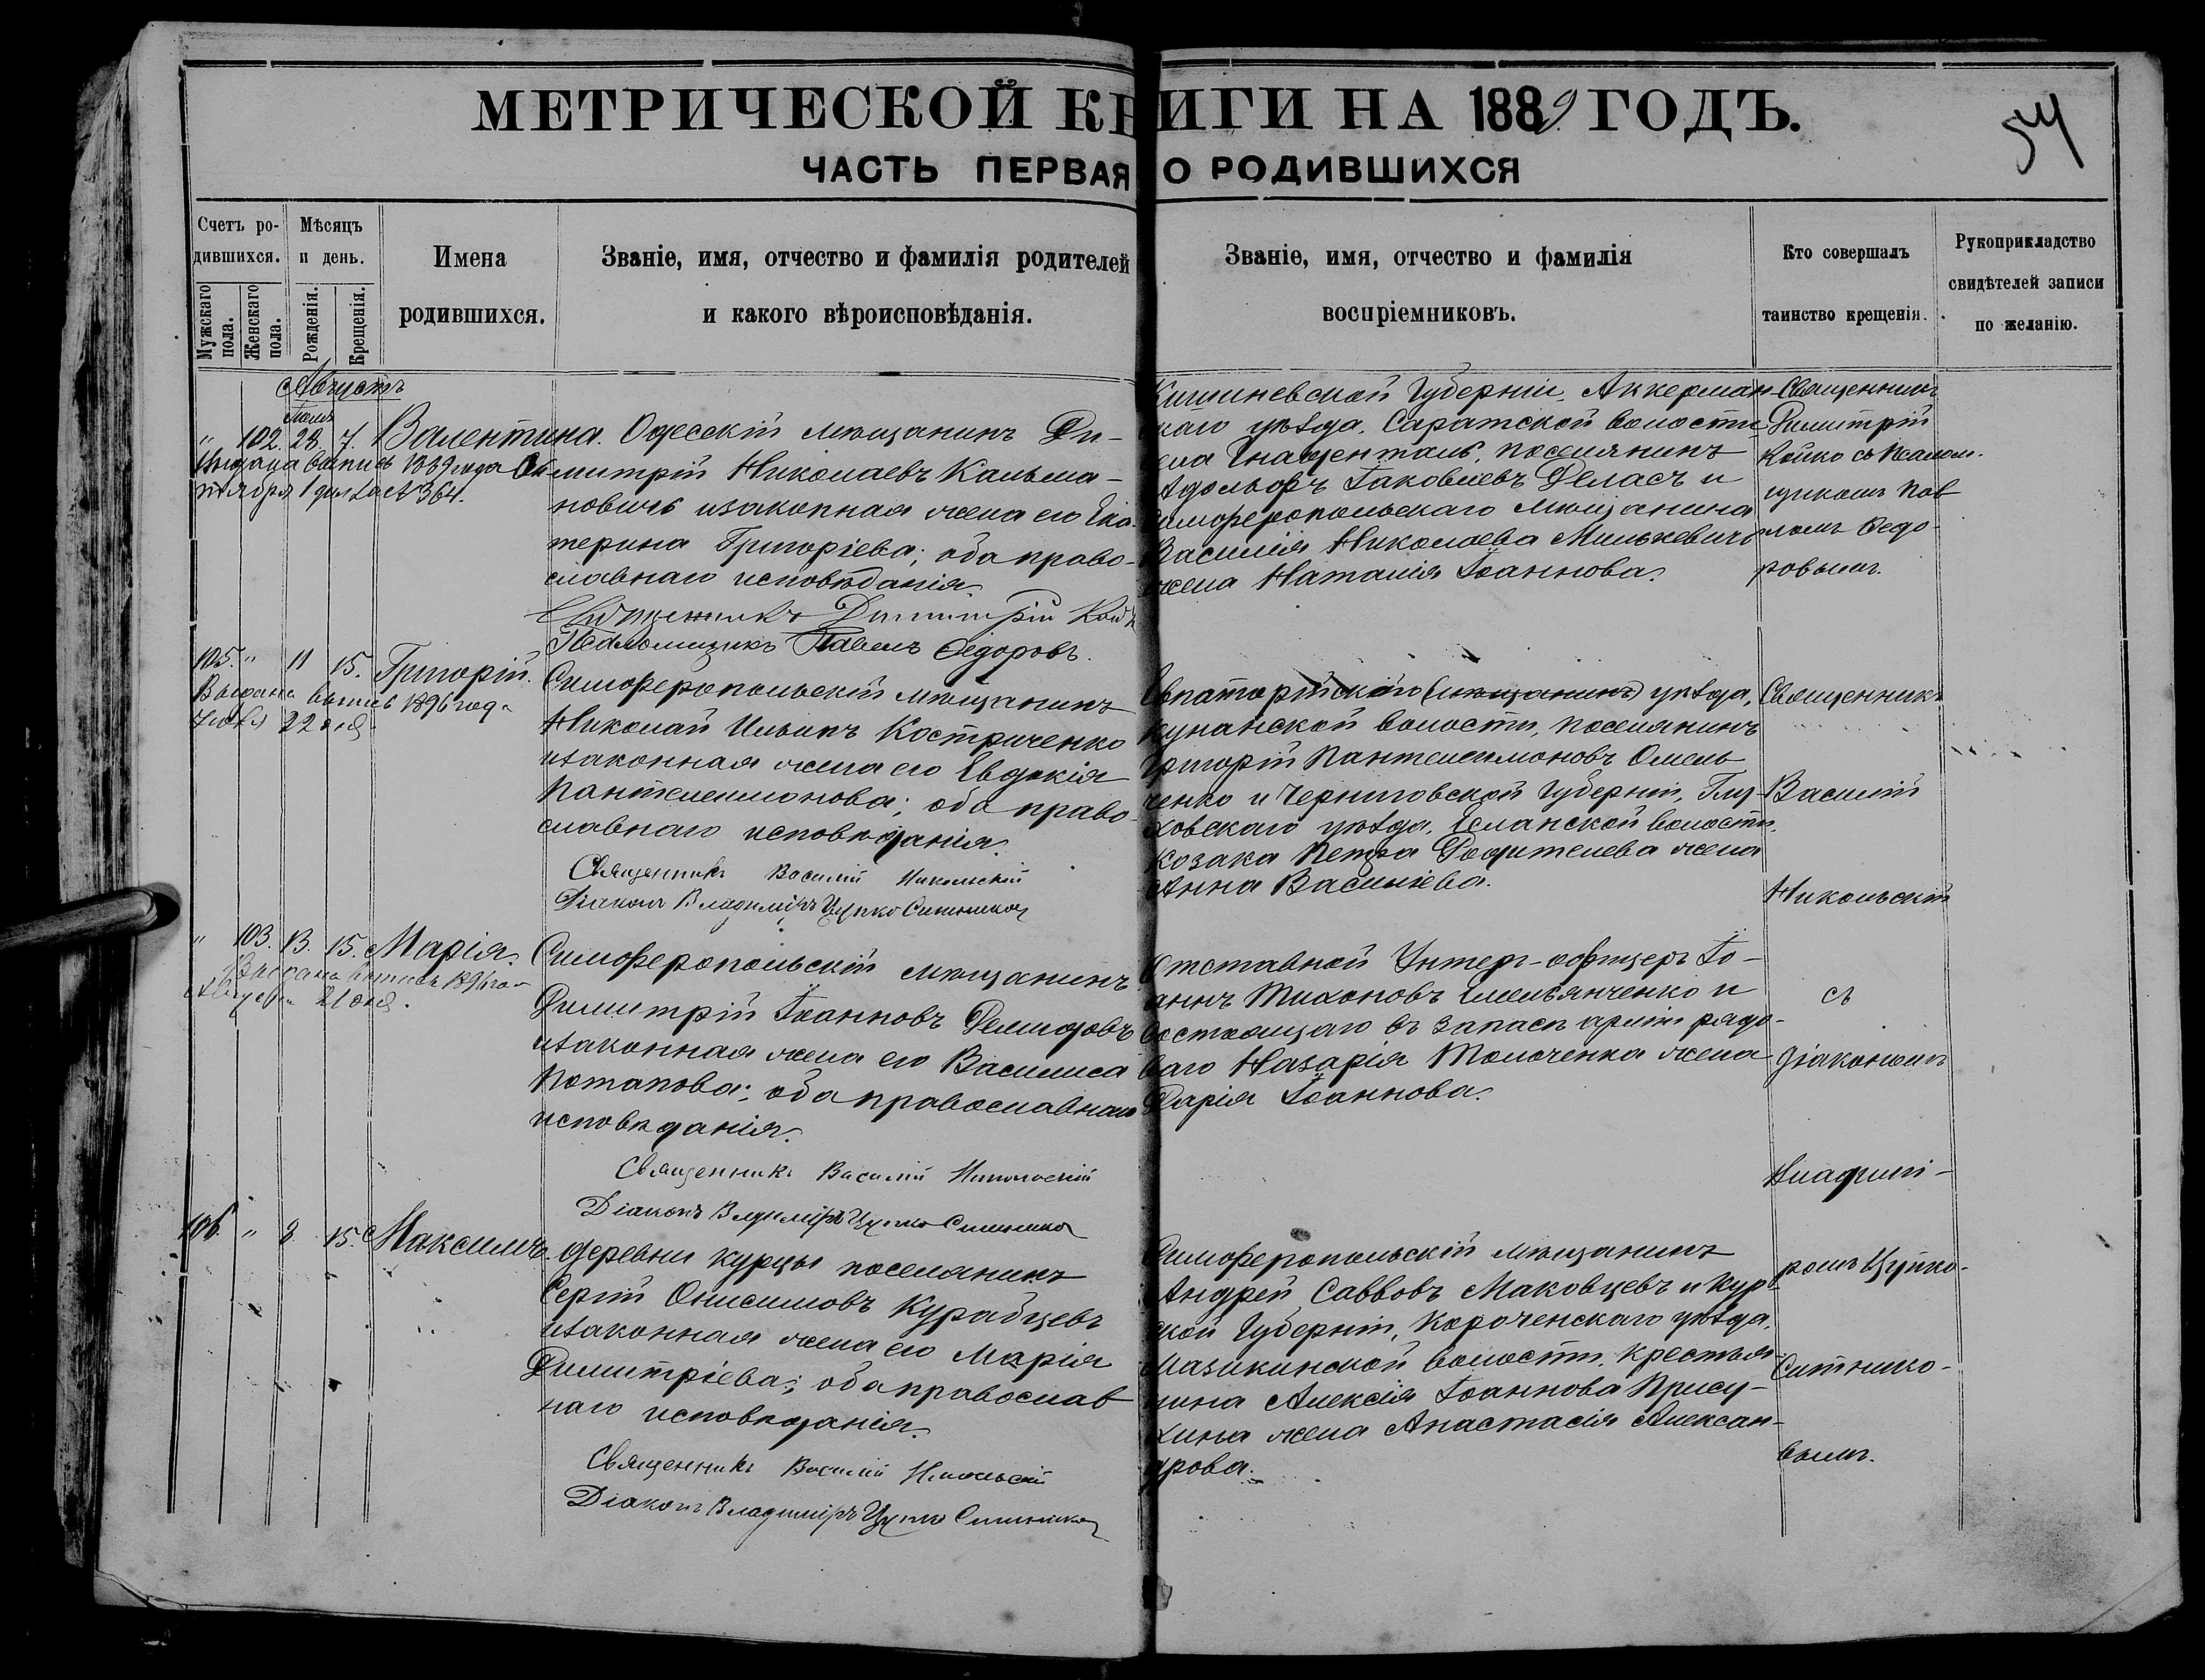 МЕТРИЧЕСКОЙ КНИГИ НА 1889 ГОДЪ.
54
ЧАСТЬ ПЕРВАЯ О РОДИВШИХСЯ
Счетъ родившихся.
Мужскаго пола.
Женскаго пола.
Мѣсяцъ и день.
Рожденія.
Крещенія.
Имена
родившихся.
Званіе, имя, отчество и фамилія родителей
и какого вѣроисповѣданія.
Званіе, имя, отчество и фамилія
воспріемниковъ.
Кто совершалъ
таинство крещенія.
Рукоприкладство
свидѣтелей записи
по желанію.
Августъ
" 102. 28. 7. Валентина.
Выдана выпись 1889 года Ок
тября 1 дня за № 364.
Одесскій мѣщанинъ Ди-
митрій Николаевъ Кальма-
новичъ и законная жена его Ека-
терина Григоріева; оба право-
славнаго исповѣданія.
Священникъ Димитрій Кой
Псаломщикъ Павелъ Ѳедоровъ.
Кишиневской Губерніи, Аккерман-
скаго уѣзда, Саратской волости
села Гнаденталь, поселянинъ
Адольфъ Іаковлевъ Деласъ и
Симферопольскаго мѣщанина
Василія Николаева Милькевича
жена Наталія Іоаннова.
Священникъ
Димитрій
Койко съ псалом-
щикомъ Пав
ломъ Ѳедо-
ровымъ.
105. " 11 15. Григорій.
Выдана выпись 1896 года
22 дня
Симферопольскій мѣщанинъ
Николай Ильинъ Костриченко
и законная жена его Евдокія
Пантелеимонова; оба право-
славнаго исповѣданія.
Священникъ Василій Никольскій
Діаконъ Владиміръ Цупко Ситников
Евпаторійскій (мѣщанинъ) уѣзда,
кунанской волости, поселянинъ
Григорій Пантелеимоновъ Омель
ченко и Черниговской Губерніи, Глу-
ховскаго уѣзда, Есманской волости,
козака Петра жена
Анна Василіева.
Священникъ
Василій
Никольскій
" 103. 13. 15. Марія.
Выдана выпись 1896 го-
21 дня.
Симферопольскій мѣщанинъ
Димитрій Іоанновъ Демидовъ
и законная жена его Василиса
Потапова; оба православнаго
исповѣданія.
Священникъ Василій Никольскій
Діаконъ Владиміръ Цупко Ситников
Отставной Унтеръ-офицеръ Іо-
аннъ Тихоновъ Емельянченко и
состоящаго въ запасѣ арміи рядо-
ваго Назарія Толоченка жена
Дарія Іоаннова.
съ
діакономъ
Владимі-
106. " 8. 15. Максимъ.
деревни Курцы поселянинъ
Сергій Онисимовъ Курабцевъ
и законная жена его Марія
Димитріева; оба православ
наго исповѣданія.
Священникъ Василій Никольскій
Діаконъ Владиміръ Цупко Ситников
Симферопольскій мѣщанинъ
Андрей Саввовъ Маковцевъ и Кур-
ской Губерніи, Короченскаго уѣзда,
Мазикинской волости, крестья-
нина Алексія Іоаннова Прису-
хина жена Анастасія Алексан-
дрова.
ромъ Цупко-
Ситнико-
вымъ.